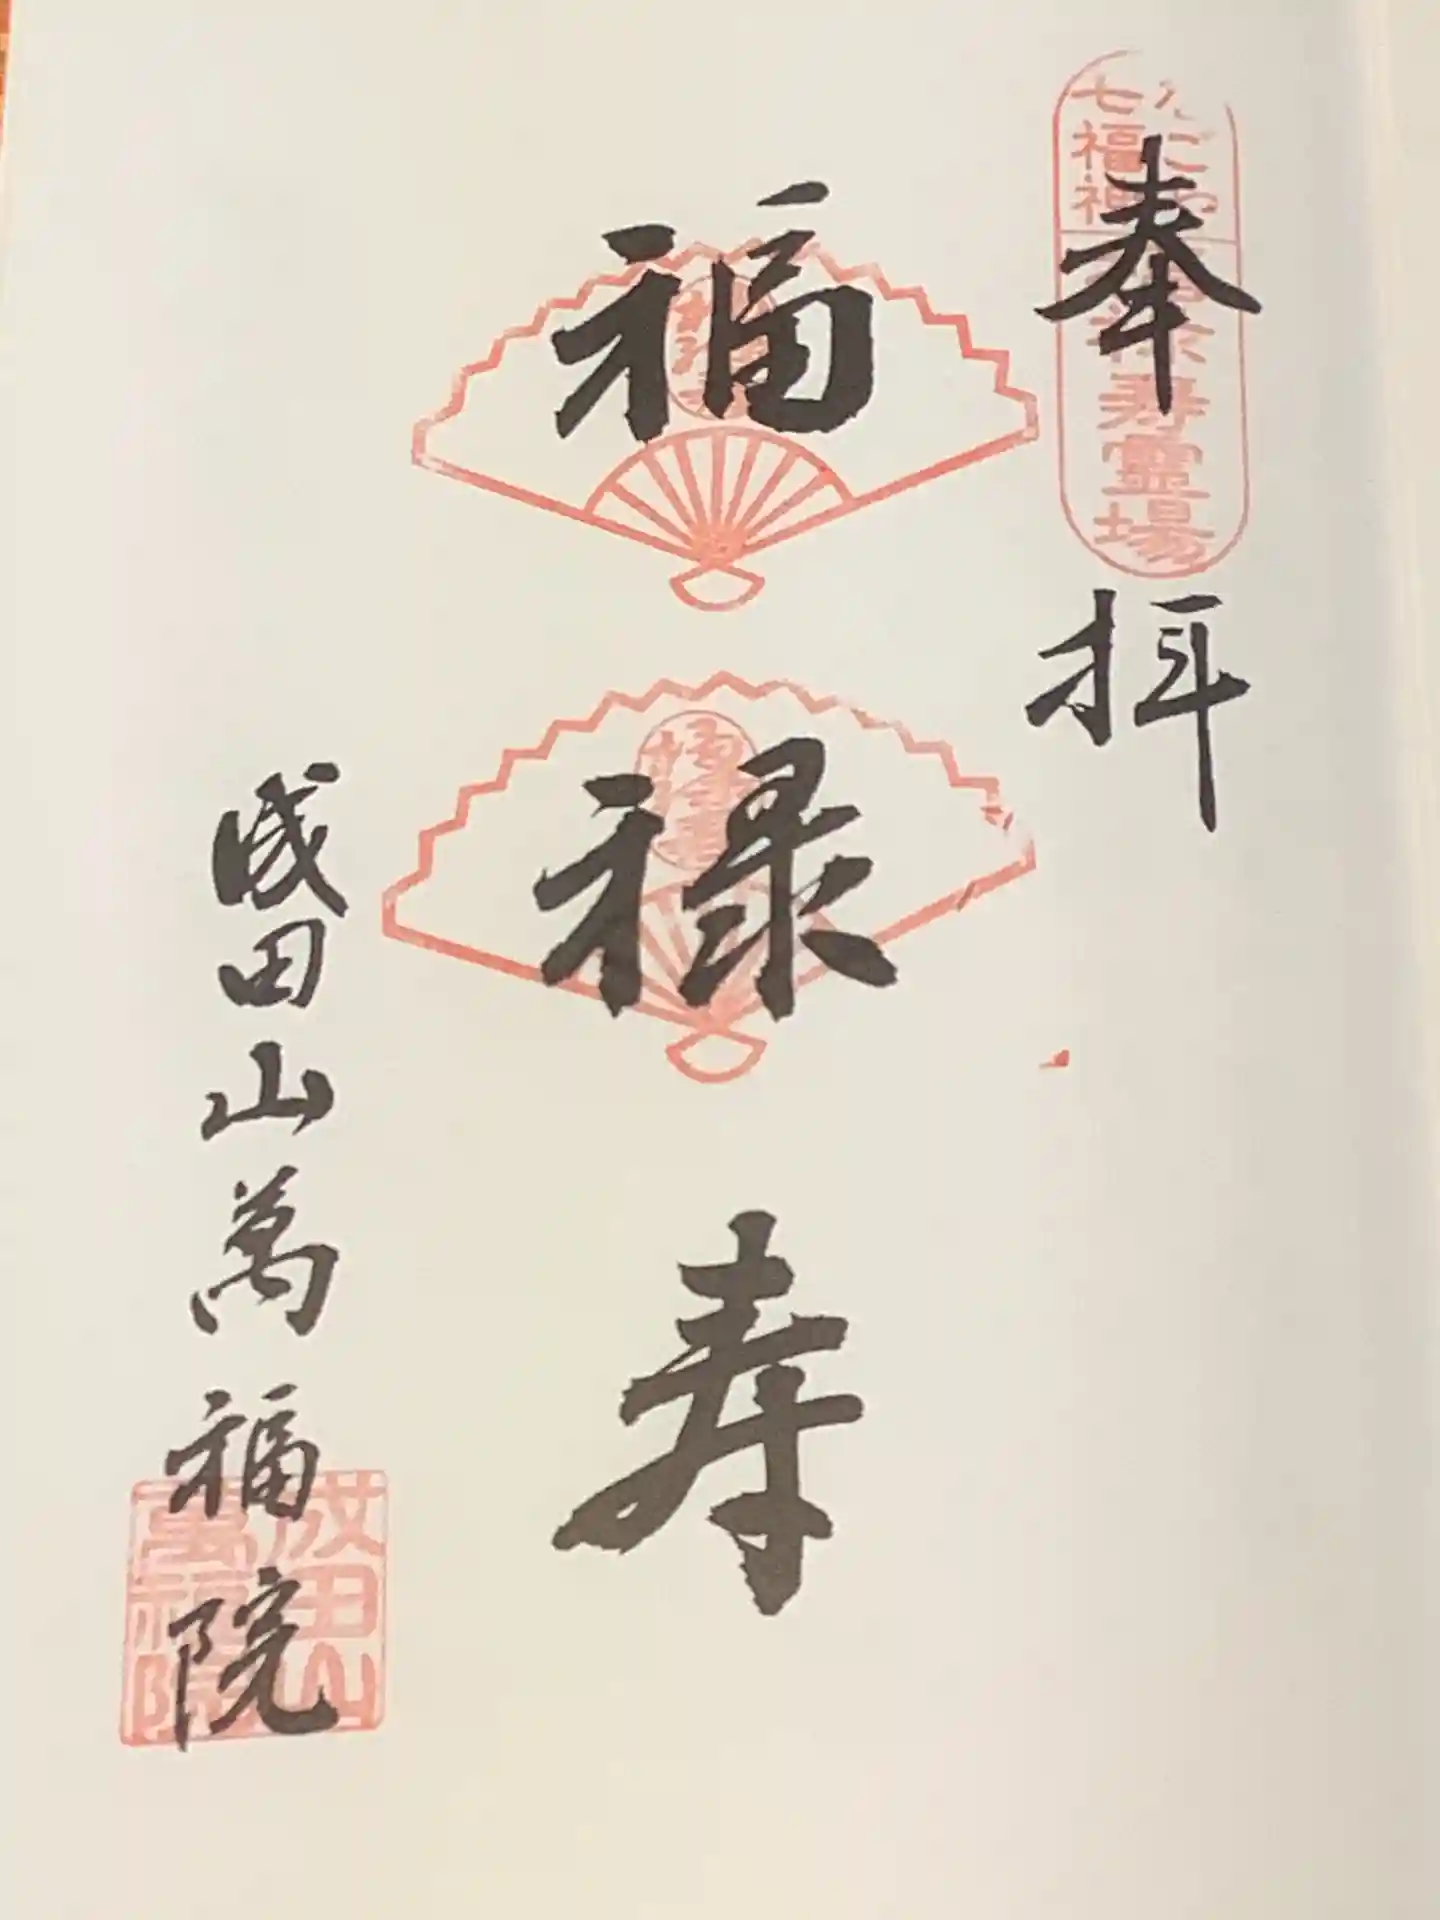 奉拝
七福神
福禄寿霊場
福禄寿
成田山萬福院
成田山
萬福院